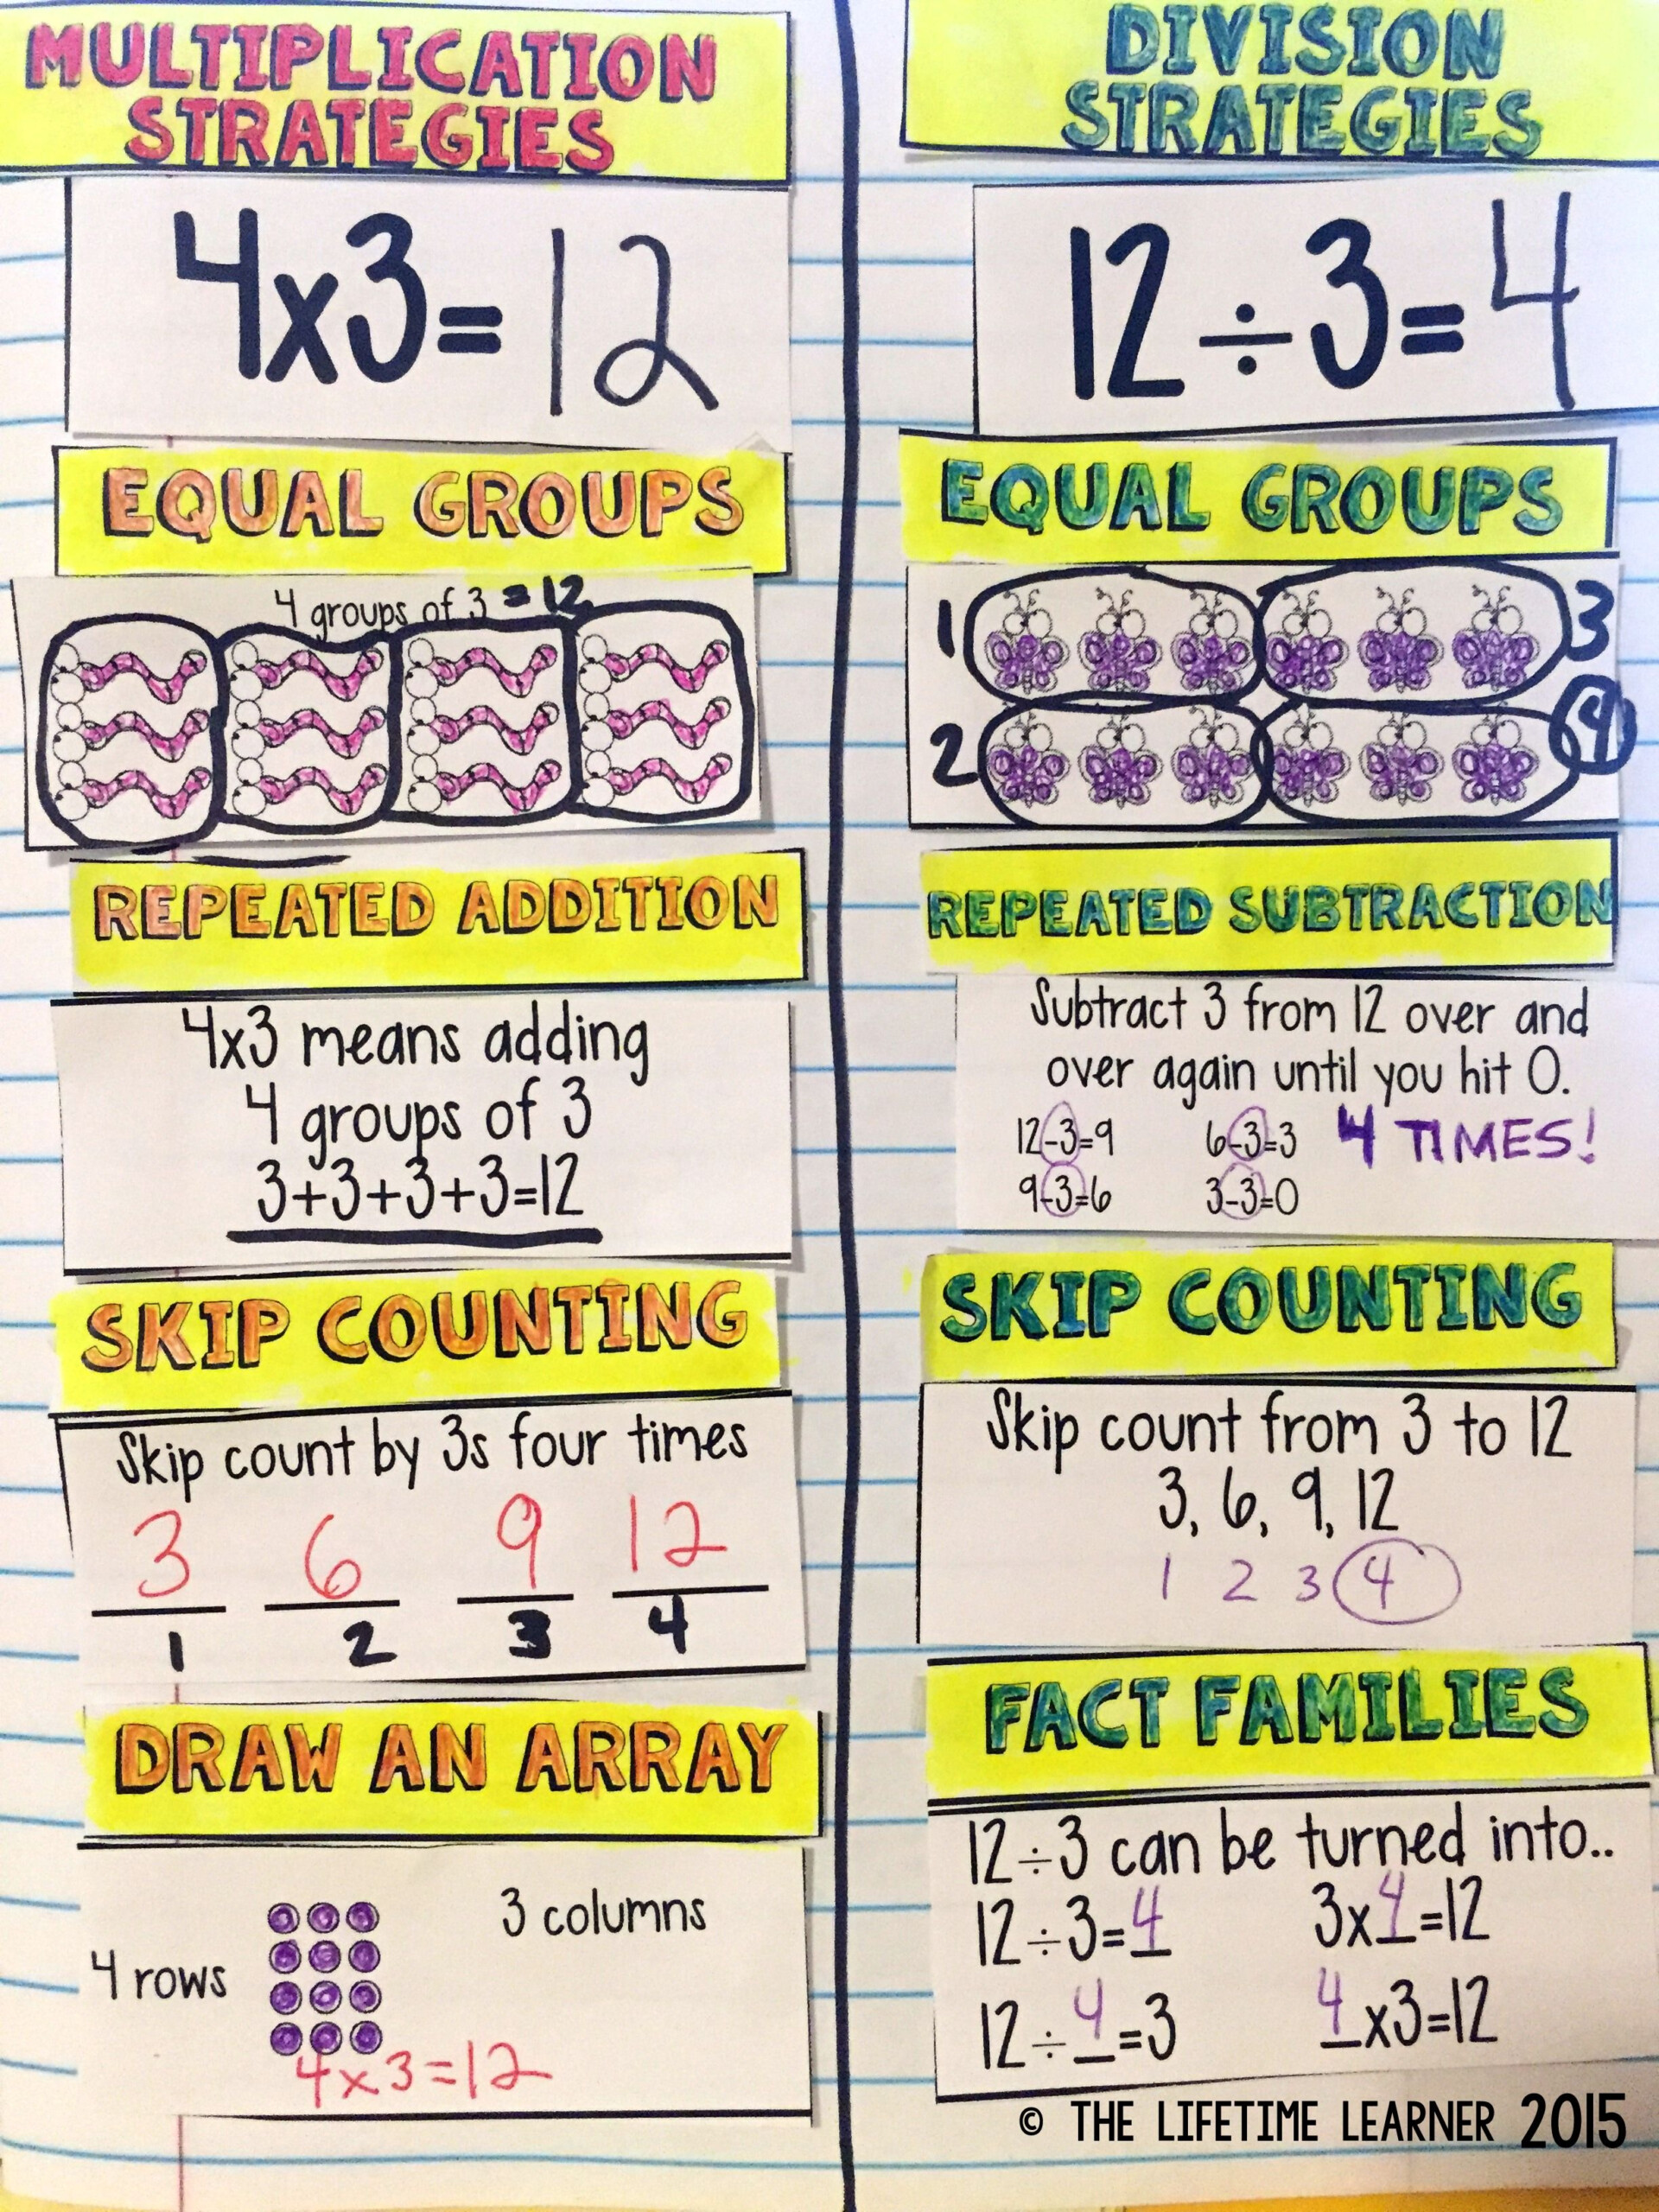 MULTIPLICATION
STRATEGIES
4x3=12
EQUAL GROUPS
4 groups of 3 = 12
REPEATED ADDITION
4x3 means adding
4 groups of 3
3+3+3+3=12
SKIP COUNTING
Skip count by 3s four times
3 6 9 12
1 2 3 4
DRAW AN ARRAY
3 columns
4 rows
4x3=12
DIVISION
STRATEGIES
12÷3=4
EQUAL GROUPS
1 3
2 4
REPEATED SUBTRACTION
Subtract 3 from 12 over and
over again until you hit 0.
12-3=9 6-3=3 4 TIMES!
9-3=6 3-3=0
SKIP COUNTING
Skip count from 3 to 12
3, 6, 9, 12
1 2 3 4
FACT FAMILIES
12÷3 can be turned into..
12÷3=4 3x4=12
12÷4=3 4x3=12
© THE LIFETIME LEARNER 2015